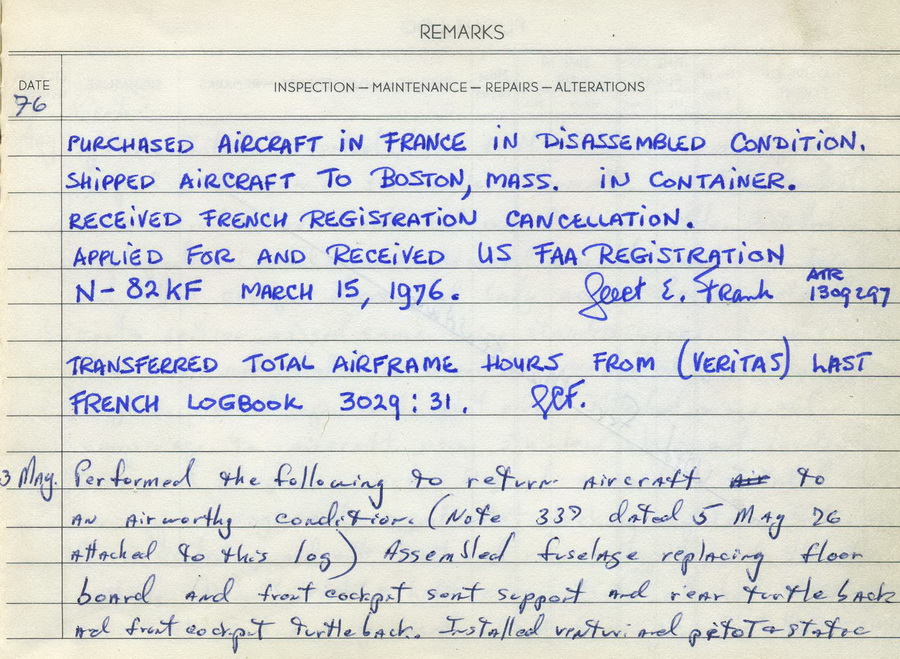 REMARKS
DATE
76
INSPECTION — MAINTENANCE — REPAIRS — ALTERATIONS
PURCHASED AIRCRAFT IN FRANCE IN DISASSEMBLED CONDITION.
SHIPPED AIRCRAFT TO BOSTON, MASS. IN CONTAINER.
RECEIVED FRENCH REGISTRATION CANCELLATION.
APPLIED FOR AND RECEIVED US FAA REGISTRATION
N-82KF MARCH 15, 1976. E. Frank ATR 1309297
TRANSFERRED TOTAL AIRFRAME HOURS FROM (VERITAS) LAST
FRENCH LOGBOOK 3029:31.
3 May. Performed the following to return aircraft to
an airworthy condition. (Note dated 5 May 76
attached to this log) Assembled fuselage replacing floor
board and front cockpit seat support and rear turtleback
and front cockpit turtleback. Installed venturi and pitot & static